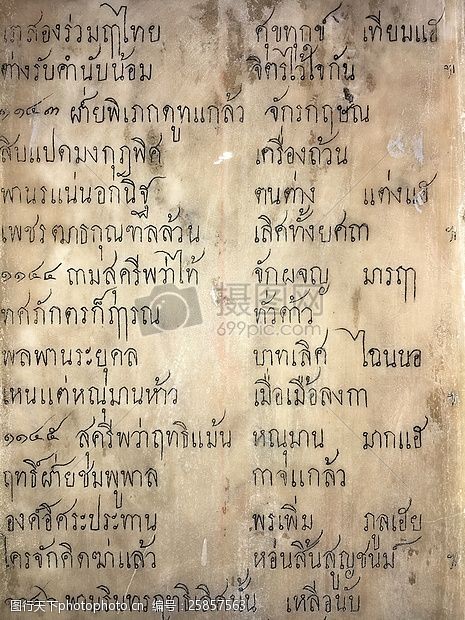 เกสองร่วมฤๅไทย ศุขทุกข์ เทียมแฮ
ต่างรับคำนับน้อม จิตรไว้ใจกัน
๑๑๔๓ ฝ่ายพิเภกดูทูแกล้ว จักรกฤษณ
สิบแปดมงกุฎพิศ เครื่องถ้วน
พานรแน่นอกนิฐ ตนต่าง แต่งแฮ
เพชรฅทธกุณฑลล้วน เลิศทั้งยศถา
๑๑๔๔ ถามสุครีพว่าไท้ จักผจญ มารฤๅ
ทศภักตรก็ฦๅรณ หริห้าว
พลพานระยุคล บาทเลิศ ไฉนนอ
เหนแต่หณุมานห้าว เมื่อเมือลงกา
๑๑๔๕ สุครีพว่าฤทธิแม้น หณุมาน มากแฮ
ฤทธิ์ฝ่ายชมพูพาล กาจแกล้ว
องค์อิศระประทาน พรเพิ่ม ภูลเฮย
ใครจักคิดฆ่าแล้ว หอ่นสิ้นสูญชนม์
เหลือนับ
摄图网
699pic.com
图行天下photophoto.cn 编号：25857563